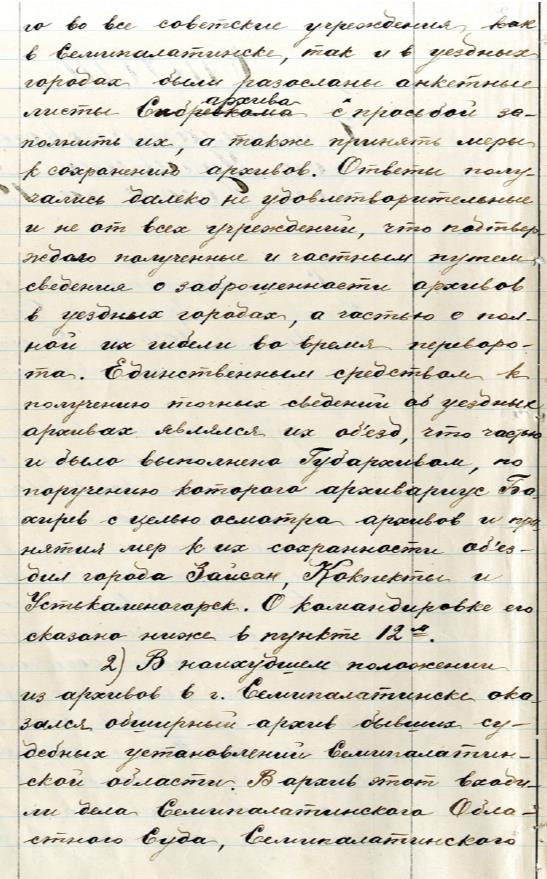 го во все советские учреждения как
в Семипалатинске, так и в уездных
городах были разосланы анкетные
архива
листы Сибревкома с просьбой за-
полнить их, а также принять меры
к сохранению архивов. Ответы полу-
чались далеко не удовлетворительные
и не от всех учреждений, что подтвер-
ждало полученные и частным путем
сведения о заброшенности архивов
в уездных городах, а частью о пол-
ной их гибели во время переворо-
та. Единственным средством к
получению точных сведений об уездных
архивах являлся их об'езд, что частью
и было выполнено Губархивом, по
поручению которого архивариус Бо-
хирев с целью осмотра архивов и при-
нятия мер к их сохранности об'ез-
дил города Зайсан, Кокпекты и
Устькаменогорск. О командировке его
сказано ниже в пункте 12м.
2) В наихудшем положении
из архивов в г. Семипалатинске ока-
зался обширный архив бывших су-
дебных установлений Семипалатин-
ской области. В архив этот входи-
ли дела Семипалатинского Обла-
стного Суда, Семипалатинского